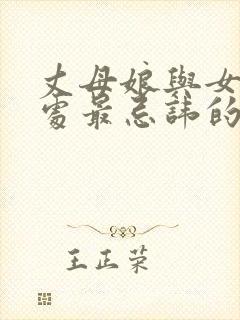 丈母娘與女
處最忌諱的
王正荣